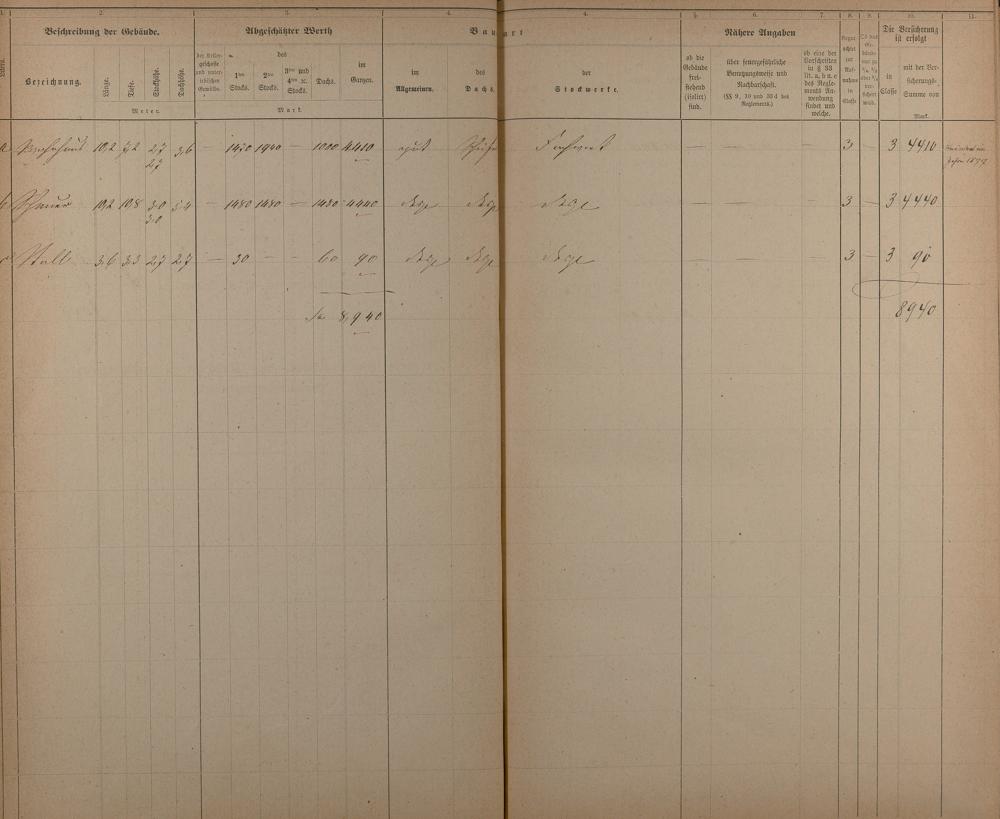 1. 2. 3. 4. 4. 5. 6. 7. 8. 9. 10. 11.
Beschreibung der Gebäude. Abgeschätzter Werth Bauart Nähere Angaben Die Versicherung ist erfolgt
Bezeichnung. Länge. Tiefe. Stockhöhe. Dachhöhe.
Meter.
der Kellergeschosse und unterirdischen Gewölbe.
des
1ten Stocks. 2ten Stocks. 3ten und 4ten ꝛc. Stocks. Dachs. im Ganzen.
Mark.
im Allgemeinen. des Dachs. der Stockwerke.
ob die Gebäude freistehend (isolirt) sind.
über feuergefährliche Benutzungsweise und Nachbarschaft. (§§ 9, 10 und 33 d des Reglements.)
ob eine der Vorschriften in § 33 lit. a, b u. c des Reglements Anwendung findet und welche.
in Classe mit der Versicherungs-Summe von
Mark.
a Wohnhaus 10,2 7,2 2,7 3,6 — 1470 1940 — 1000 4410 gut Fachwerk — — — 3 — 3 4410
2,7
Scheuer 10,2 10,8 3,0 5,4 — 1480 1480 — 1480 4440 dsgl dsgl dsgl — — — 3 — 3 4440
3,0
Stall 3,6 3,3 2,7 2,7 — 30 — — 60 90 dsgl dsgl dsgl — — — 3 — 3 90
8,940 8940